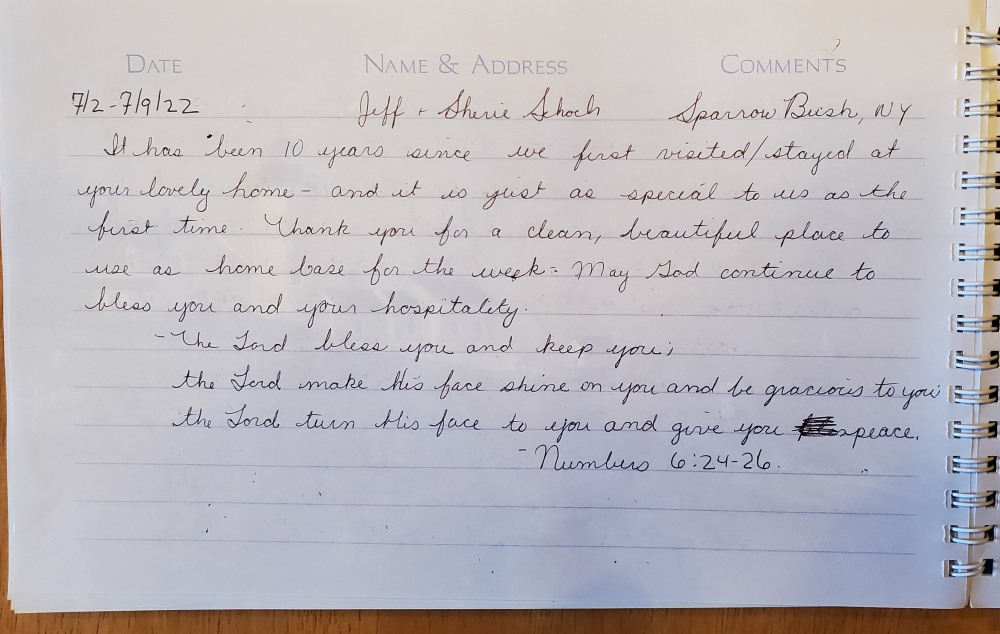 DATE NAME & ADDRESS COMMENTS
7/2-7/9/22 Jeff + Sherie Schoch Sparrow Bush, NY
It has been 10 years since we first visited/stayed at
your lovely home - and it is just as special to us as the
first time. Thank you for a clean, beautiful place to
use as home base for the week. May God continue to
bless you and your hospitality.
-The Lord bless you and keep you;
the Lord make His face shine on you and be gracious to you;
the Lord turn His face to you and give you peace.
- Numbers 6:24-26.